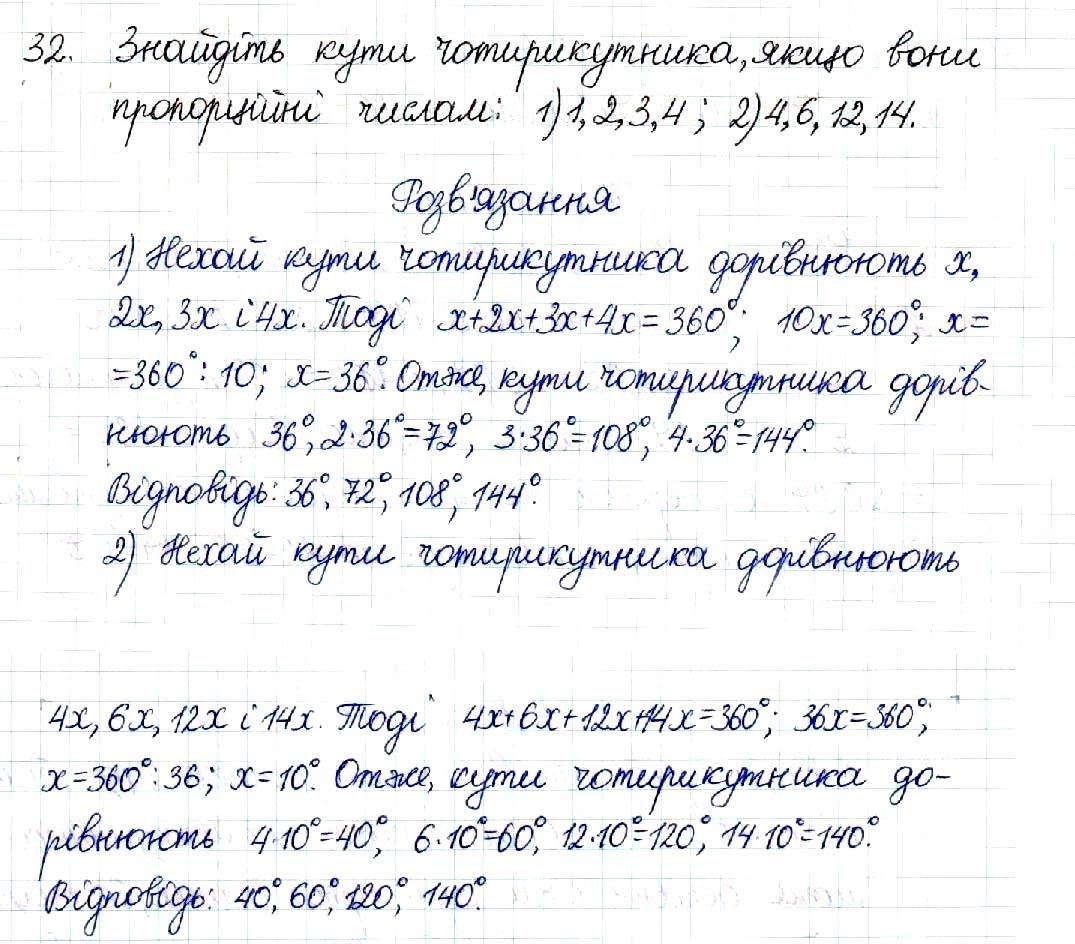 32. Знайдіть кути чотирикутника, якщо вони
пропорційні числам: 1) 1, 2, 3, 4; 2) 4, 6, 12, 14.
Розв'язання
1) Нехай кути чотирикутника дорівнюють x,
2x, 3x і 4x. Тоді x+2x+3x+4x=360°; 10x=360°; x=
=360°:10; x=36°. Отже, кути чотирикутника дорів-
нюють 36°, 2·36°=72°, 3·36°=108°, 4·36°=144°.
Відповідь: 36°, 72°, 108°, 144°.
2) Нехай кути чотирикутника дорівнюють
4x, 6x, 12x і 14x. Тоді 4x+6x+12x+14x=360°; 36x=360°;
x=360°:36; x=10°. Отже, кути чотирикутника до-
рівнюють 4·10°=40°, 6·10°=60°, 12·10°=120°, 14·10°=140°.
Відповідь: 40°, 60°, 120°, 140°.